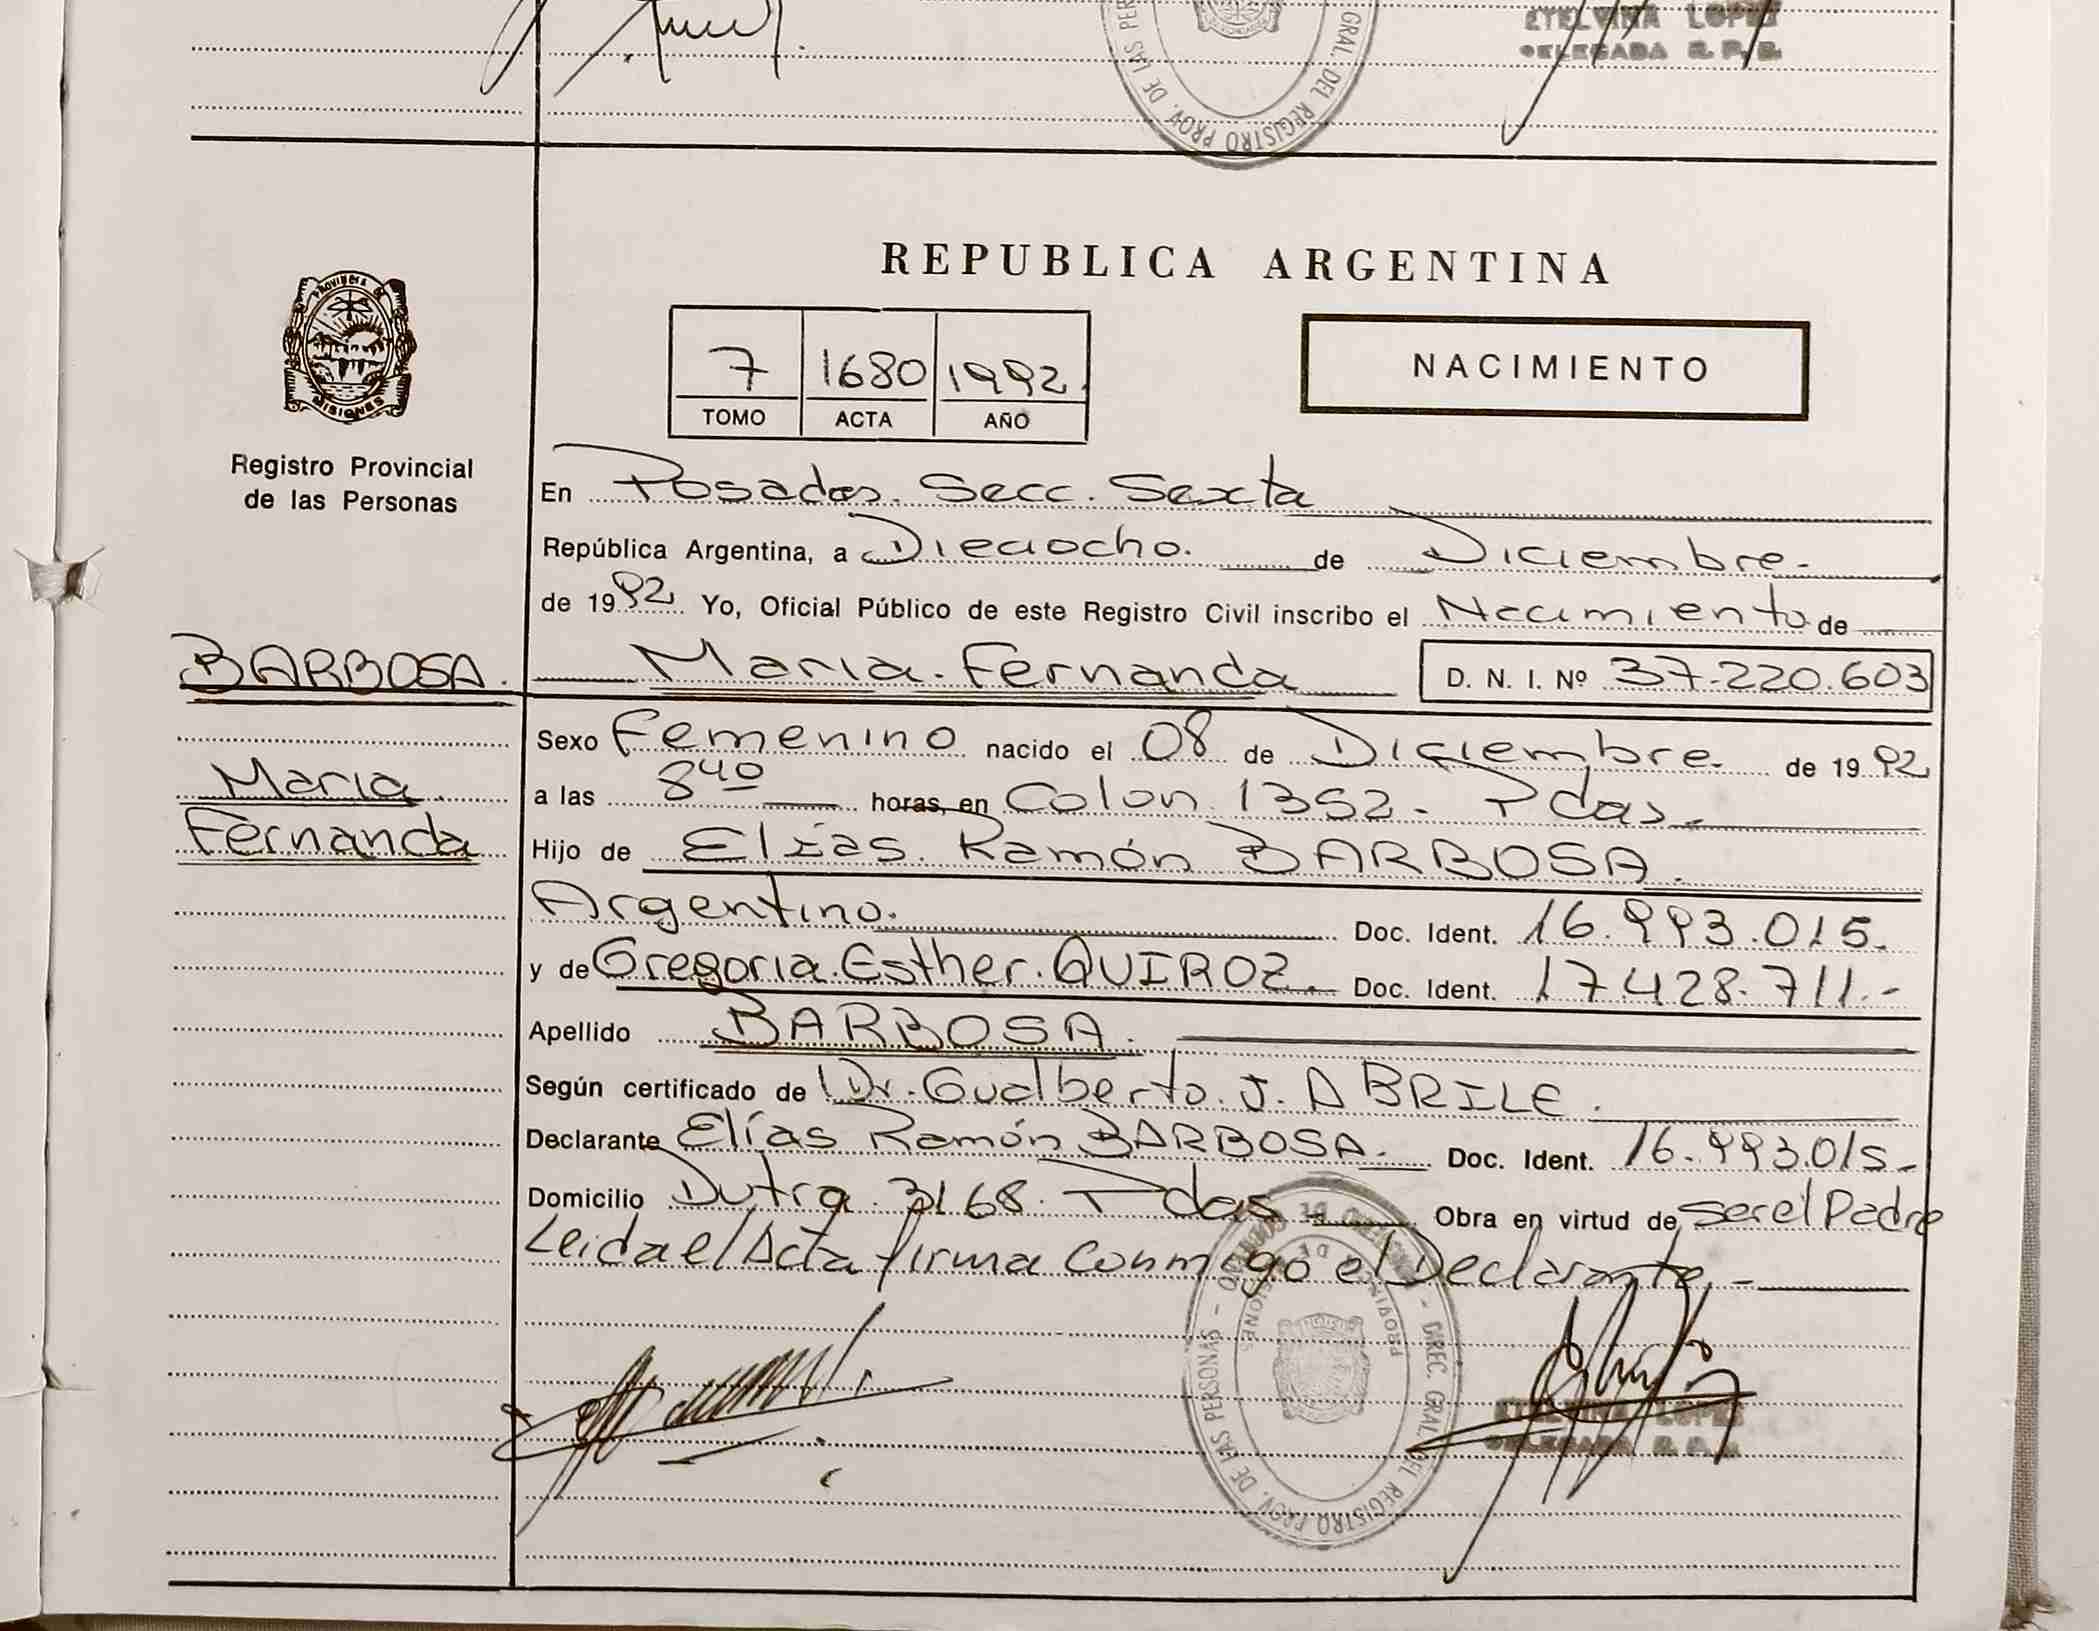 ETELVINA LOPEZ
DELEGADA R. P. P.
PROV. DE LAS PER
GRAL. DEL REGISTRO
REPUBLICA ARGENTINA
PROVINCIA DE
MISIONES
7 1680 1992
TOMO ACTA AÑO
NACIMIENTO
Registro Provincial
de las Personas
En Posadas. Secc. Sexta
República Argentina, a Dieciocho. de Diciembre.
de 1992 Yo, Oficial Público de este Registro Civil inscribo el Nacimiento de
BARBOSA. Maria. Fernanda D. N. I. Nº 37.220.603
Sexo Femenino nacido el 08 de Diciembre. de 1992
Maria
a las 8 40 horas, en Colon 1352. Pdas.
Fernanda
Hijo de Elías. Ramón BARBOSA.
Argentino. Doc. Ident. 16.993.015.
y de Gregoria. Esther. QUIROZ. Doc. Ident. 17.428.711.-
Apellido BARBOSA.
Según certificado de Dr. Gualberto. J. ABRILE.
Declarante Elías Ramón BARBOSA. Doc. Ident. 16.993.015-
Domicilio Dutra. 3168. Pdas Obra en virtud de ser el Padre
Leida el Acta firma conmigo el Declarante.-
PROVINCIA DE MISIONES
DIREC. GRAL. DEL REGISTRO PROV. DE LAS PERSONAS
ETELVINA LOPEZ
DELEGADA R. P. P.